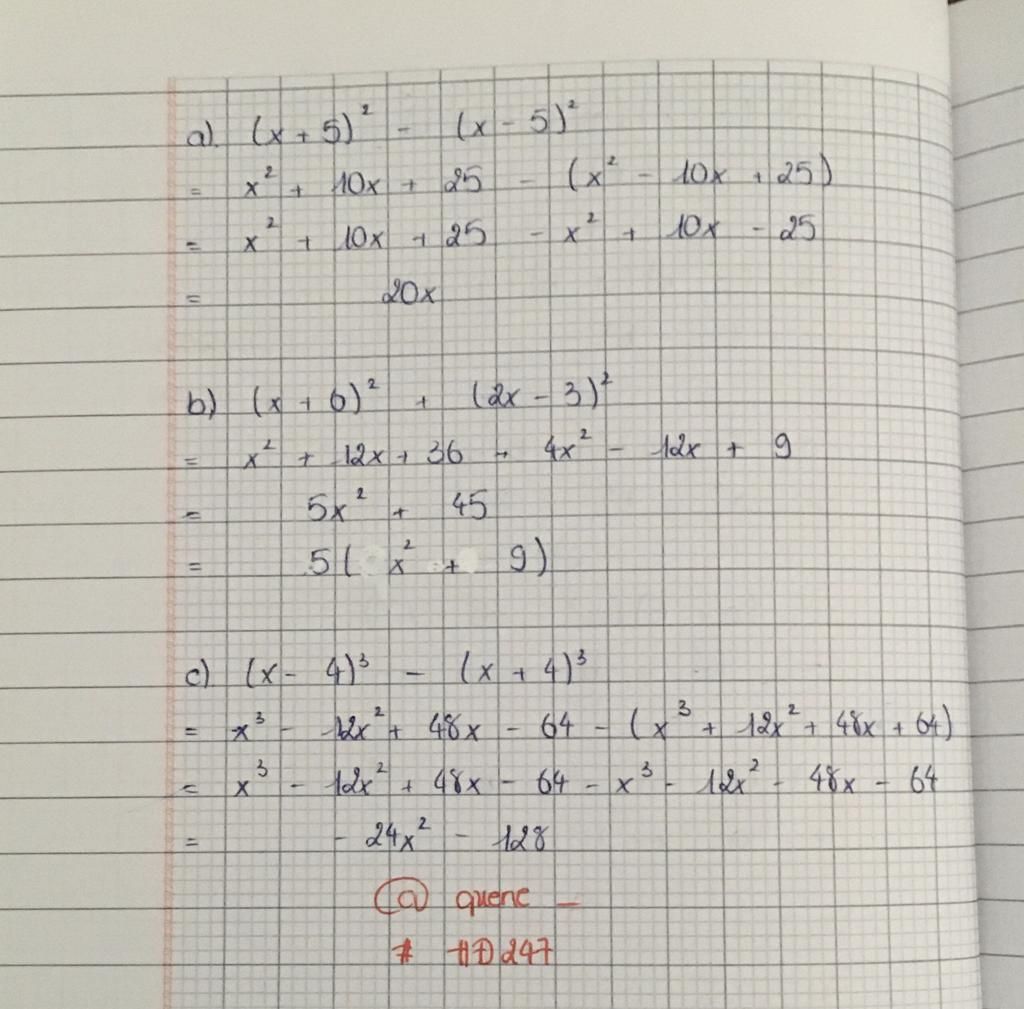 a) (x + 5)² - (x - 5)²
= x² + 10x + 25 - (x² - 10x + 25)
= x² + 10x + 25 - x² + 10x - 25
= 20x
b) (x + 6)² + (2x - 3)²
= x² + 12x + 36 + 4x² - 12x + 9
= 5x² + 45
= 5( x² + 9)
c) (x - 4)³ - (x + 4)³
= x³ - 12x² + 48x - 64 - (x³ + 12x² + 48x + 64)
= x³ - 12x² + 48x - 64 - x³ - 12x² - 48x - 64
= - 24x² - 128
@ quene _
# HD247